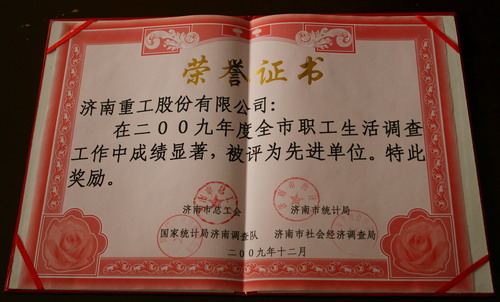 荣誉证书
济南重工股份有限公司：
在二00九年度全市职工生活调查
工作中成绩显著，被评为先进单位。特此
奖励。
济南市总工会 济南市统计局
国家统计局济南调查队 济南市社会经济调查局
二00九年十二月